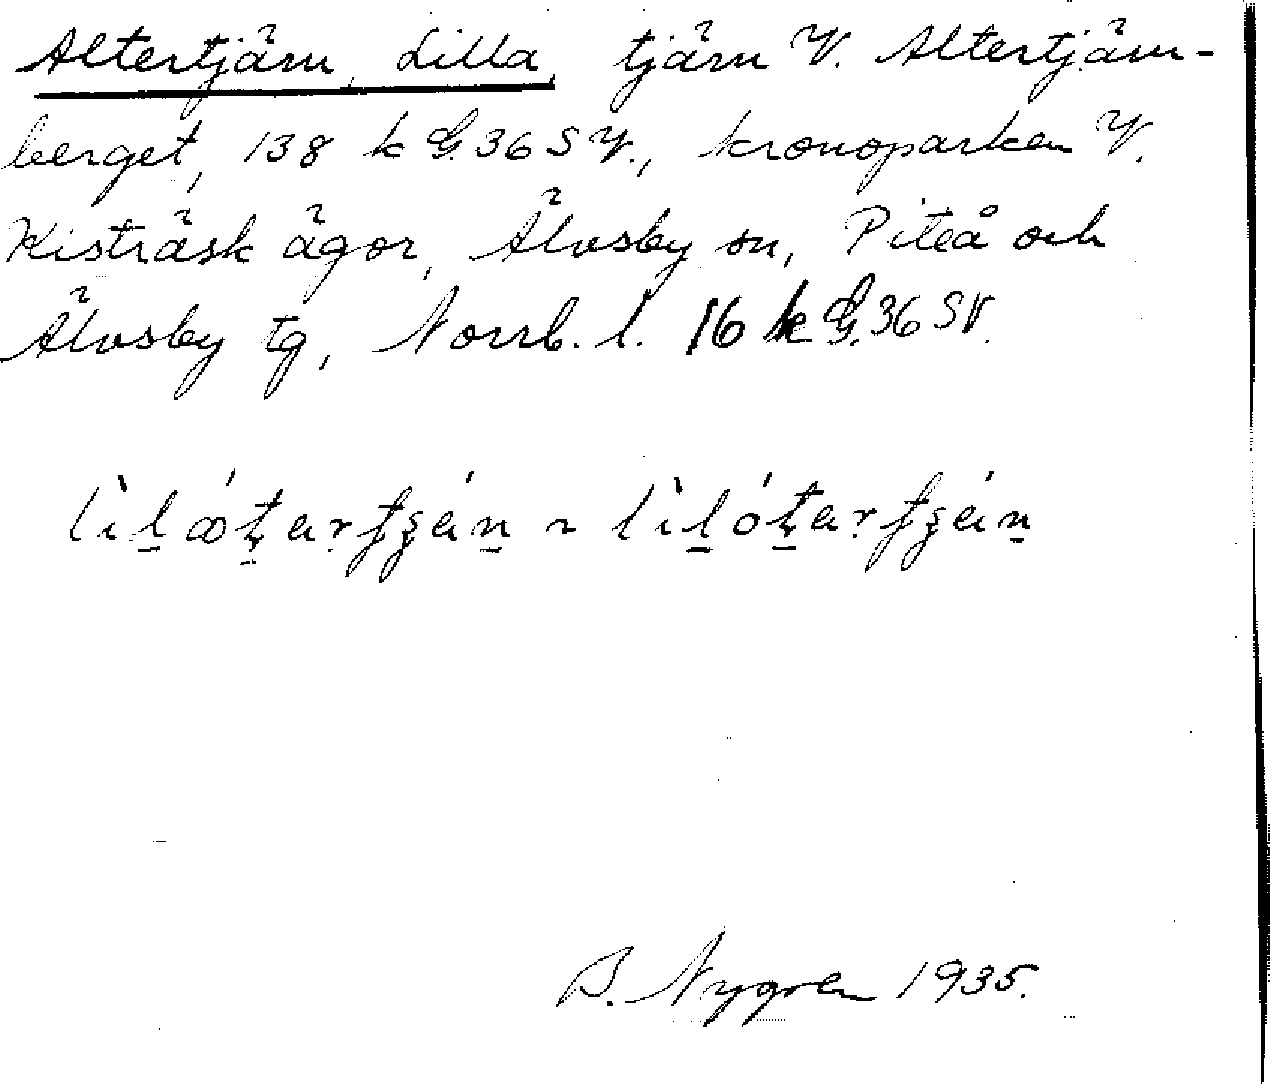 Altertjärn, Lilla, tjärn V. Altertjärn-
berget, 138 k G. 36 SV., kronoparken V.
Kisträsk ägor, Älvsby sn, Piteå och
Älvsby tg, Norrb. l. 16 k G. 36 SV.
B. Nygren 1935.